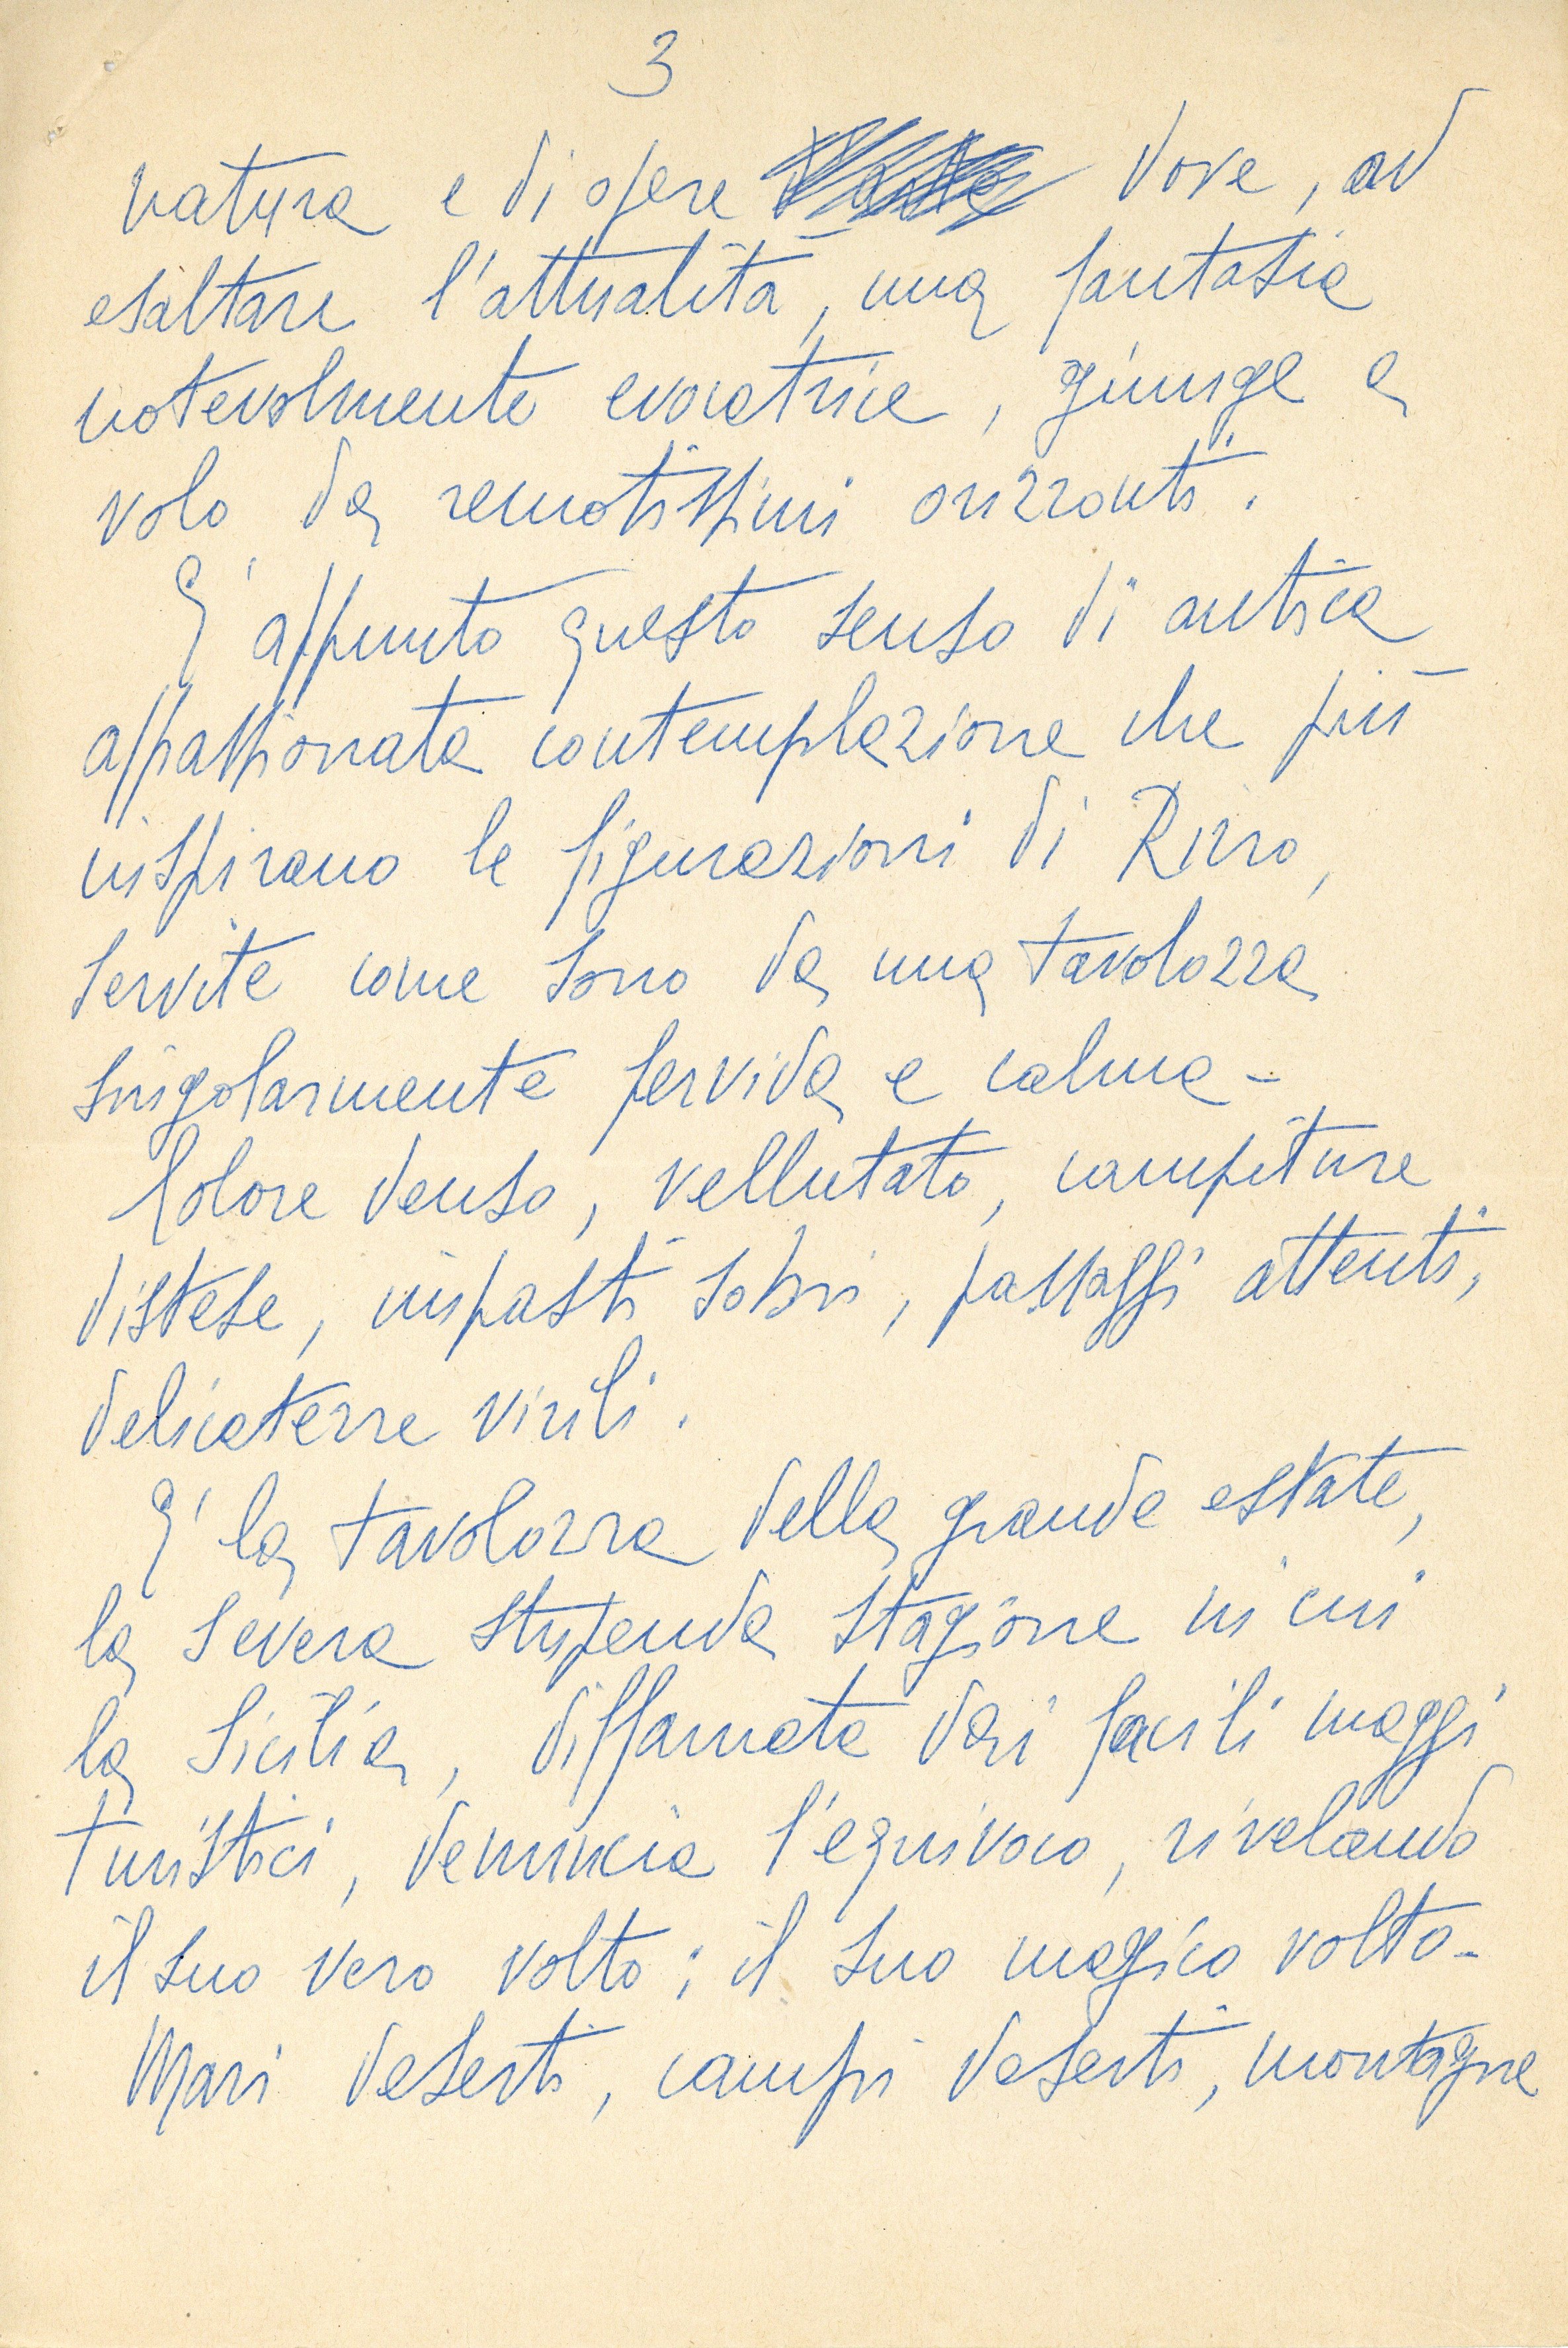 3
natura e di opere dove, ad
esaltare l'attualità, una fantasia
notevolmente evocatrice, giunge a
volo da remotissimi orizzonti.
E' appunto questo senso di antica
appassionata contemplazione che più
inspirano le figurazioni di Rizzo,
servite come sono da una tavolozza
singolarmente fervida e calma -
Colore denso, vellutato, campiture
distese, impasti sobri, passaggi attenti,
delicatezze virili.
E' la tavolozza della grande estate,
la severa stupenda stagione in cui
la Sicilia, diffamata dai facili maggi
turistici, denuncia l'equivoco, rivelando
il suo vero volto; il suo magico volto -
Mari deserti, campi deserti, montagne